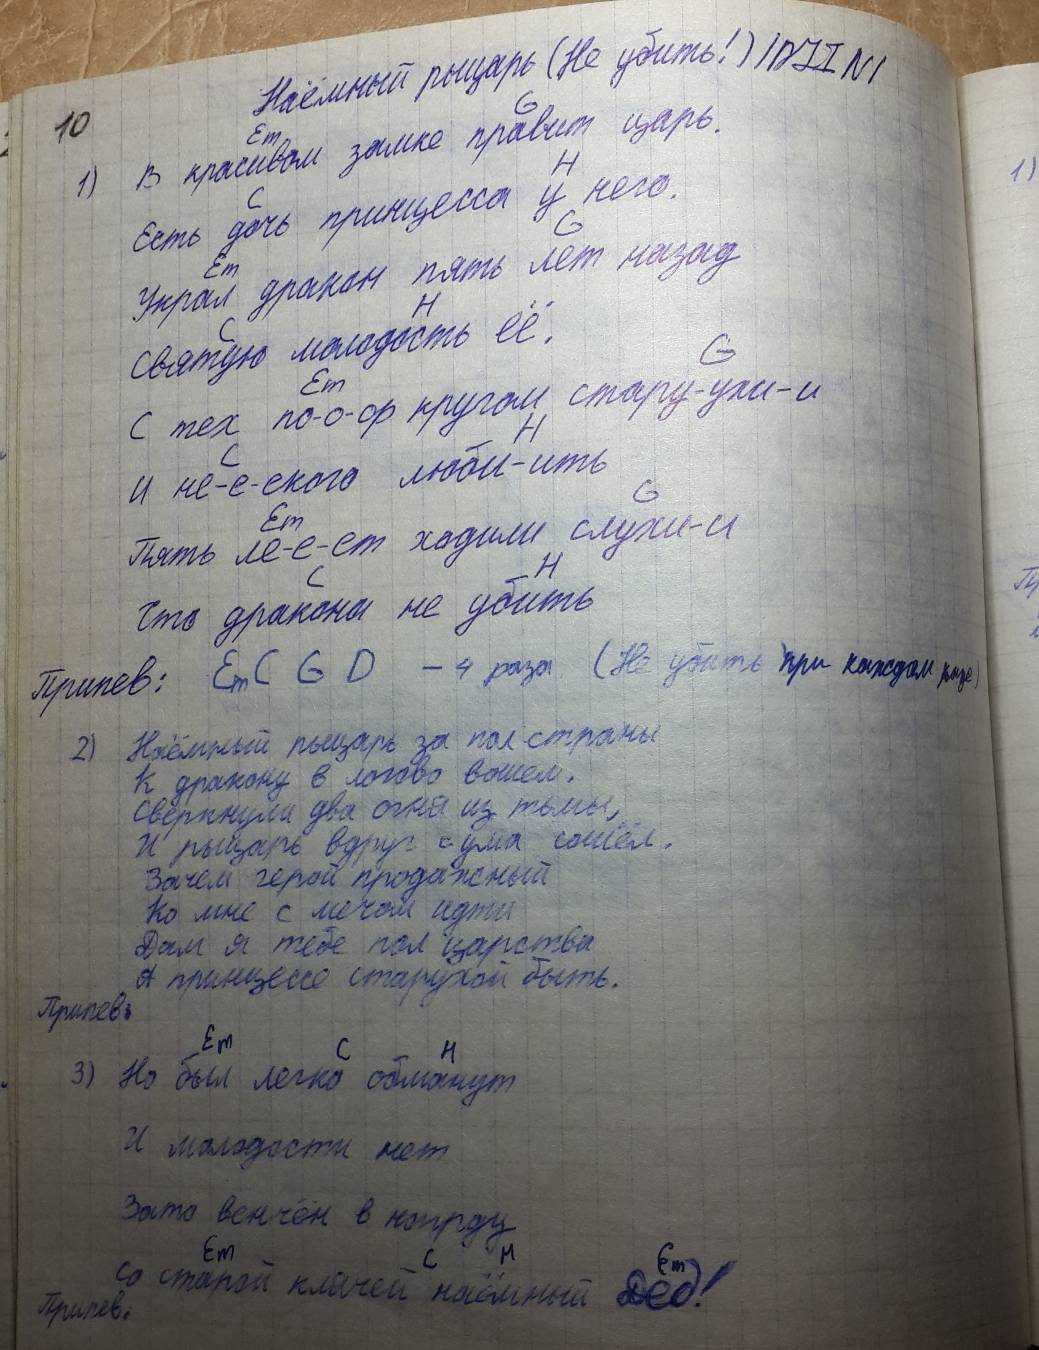 10
Наёмный рыцарь (Не убить!)
Em G
1) В красивом замке правит царь.
C H
Есть дочь принцесса у него.
Em G
Украл дракон пять лет назад
C H
Святую молодость её.
Em G
С тех по-о-ор кругом стару-ухи-и
C H
И не-е-екого люби-ить
Em G
Пять ле-е-ет ходили слухи-и
C H
Что дракона не убить
Припев: Em C G D - 4 раза (Не убить при каждом разе)
2) Наёмный рыцарь за пол страны
К дракону в логово вошел.
Сверкнули два огня из тьмы,
И рыцарь вдруг с ума сошёл.
Зачем герой продажный
Ко мне с мечом идти
Дам я тебе пол царства
А принцессе старухой быть.
Припев:
Em C H
3) Но был легко обманут
И молодости нет
Зато венчён в
Em C H Em
Со старой клячей наёмный Дед!
Припев.
1)